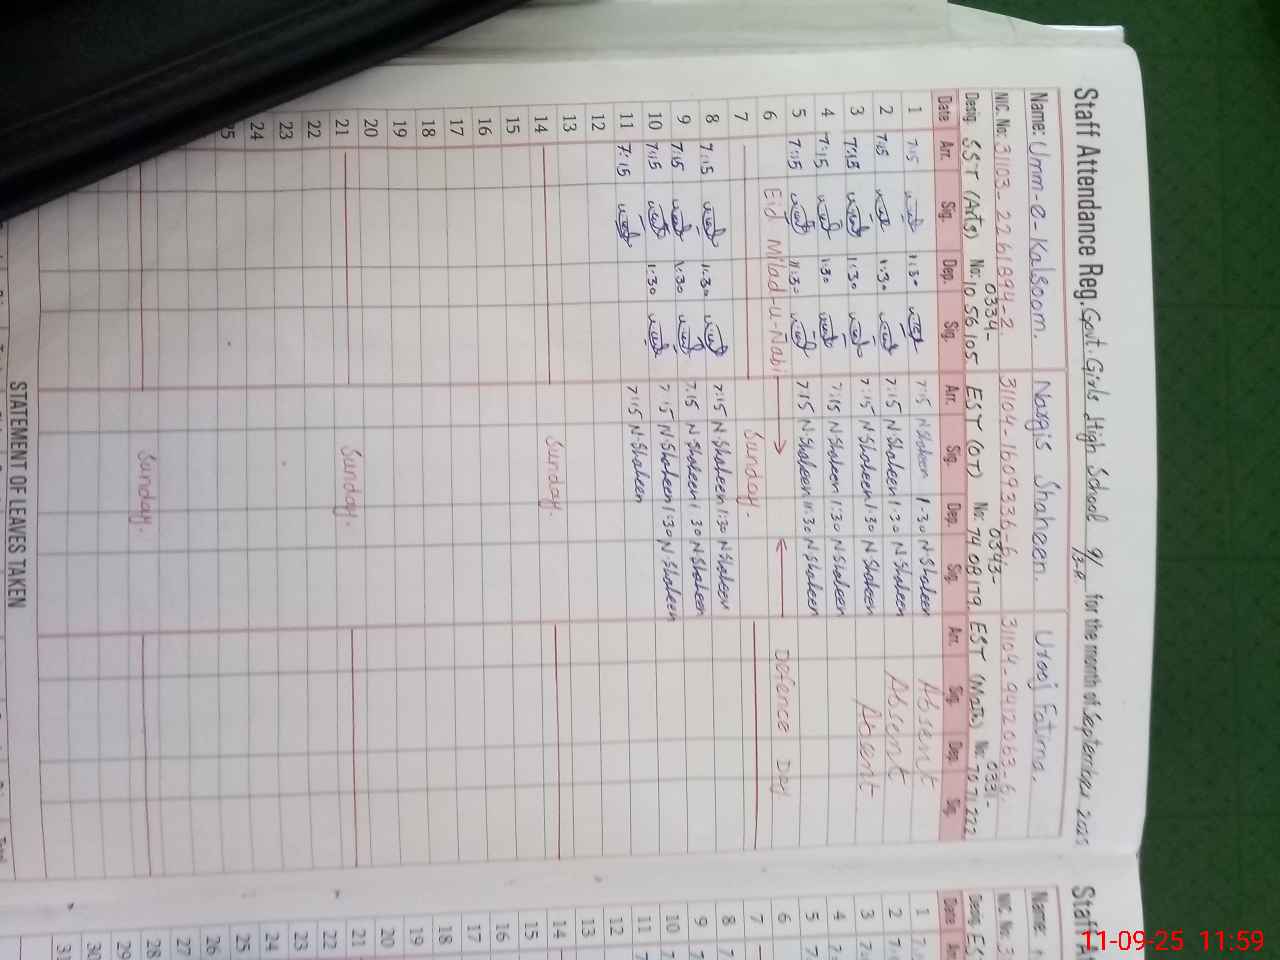 Staff Attendance Reg. Govt. Girls High School 9/13-R for the month of September 2025
Name: Umm-e-Kalsoom. Nargis Shaheen. Urooj Fatima.
NIC. No: 31103-2261894-2. 31104-1609336-6. 31104-9412063-6.
0334- 0343- 0331-
Desig. SST (Arts) No: 1056105 EST (OT) No: 7408179 EST (Math) No: 7071222
Date Arr. Sig. Dep. Sig. Arr. Sig. Dep. Sig. Arr. Sig. Dep. Sig.
1 7:15 1:30 7:15 N.Shaheen 1:30 N.Shaheen Absent
2 7:15 1:30 7:15 N.Shaheen 1:30 N.Shaheen Absent
3 7:15 1:30 7:15 N.Shaheen 1:30 N.Shaheen Absent
4 7:15 1:30 7:15 N.Shaheen 1:30 N.Shaheen
5 7:15 11:30 7:15 N.Shaheen 11:30 N.Shaheen
6 Eid Milad-u-Nabi Defence Day
7 Sunday.
8 7:15 1:30 7:15 N.Shaheen 1:30 N.Shaheen
9 7:15 1:30 7:15 N.Shaheen 1:30 N.Shaheen
10 7:15 1:30 7:15 N.Shaheen 1:30 N.Shaheen
11 7:15 7:15 N.Shaheen
12
13
14 Sunday.
15
16
17
18
19
20
21 Sunday.
22
23
24
25
Sunday.
STATEMENT OF LEAVES TAKEN
Name:
NIC. No: 3
Desig. ES
Date
1
2
3
4
5
6
7
8
9
10
11
12
13
14
15
16
17
18
19
20
21
22
23
24
25
26
27
28
29
30
31
11-09-25 11:59